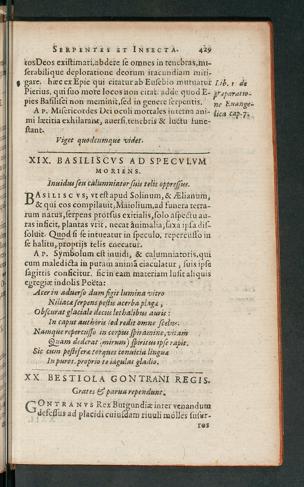 SERPENTES ET INSECTA. 429
tos Deos existimari, abdere se omnes in tenebras, mi-
serabilique deploratione deorum iracundiam miti-
gare. hæc ex Epic qui citatur ab Eusebio mutuatur
Pierius, qui suo more locos non citat: adde quod E-
pies Basilisci non meminit, sed in genere serpentis.
Lib. 1 de
præparatio-
ne Euange-
lica cap. 7.
AP. Misericordes Dei oculi mortales interna ani-
mi lætitia exhilarant, auersi, tenebris & luctu fune-
stant.
Viget quodcumque videt.
XIX. BASILISCVS AD SPECVLVM
MORIENS.
Inuidus seu calumniator suis telis oppressus.
BASILISCVS, vt est apud Solinum, & Ælianum,
& qui eos compilauit, Maiolium, ad funera terra-
rum natus, serpens prorsus exitialis, solo aspectu au-
ras inficit, plantas vrit, necat animalia, saxa ipsa dis-
soluit. Quod si se intueatur in speculo, repercusso in
se halitu, proprijs telis enecatur.
AP. Symbolum est inuidi, & calumniatoris, qui
cum maledicta in putiū animā eiaculatur, suis ipse
sagittis conficitur. sic in eam materiam lusit aliquis
egregiæ indolis Poëta:
Acer in aduersò dum figit lumina vitro
Niliaca serpens pestis acerba plagæ,
Obscurat glaciale decus lethalibus auris:
In caput authoris sed redit omne scelus.
Namque repercusso in corpus spiramine, vitam
Quam dederat (mirum) spiritus ipse rapit.
Sic cum pestifera torques conuicia lingua
In puros, proprio te iugulas gladio.
XX. BESTIOLA GONTRANI REGIS.
Grates & parua rependunt.
GONTRANVS Rex Burgundiæ inter venandum
defessus ad placidi cuiusdam riuuli molles susur-
ros